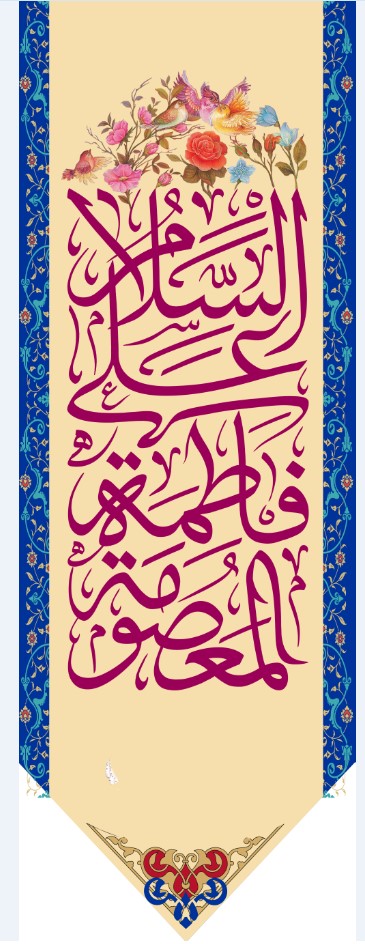 السلام
على
فاطمة
المعصومة